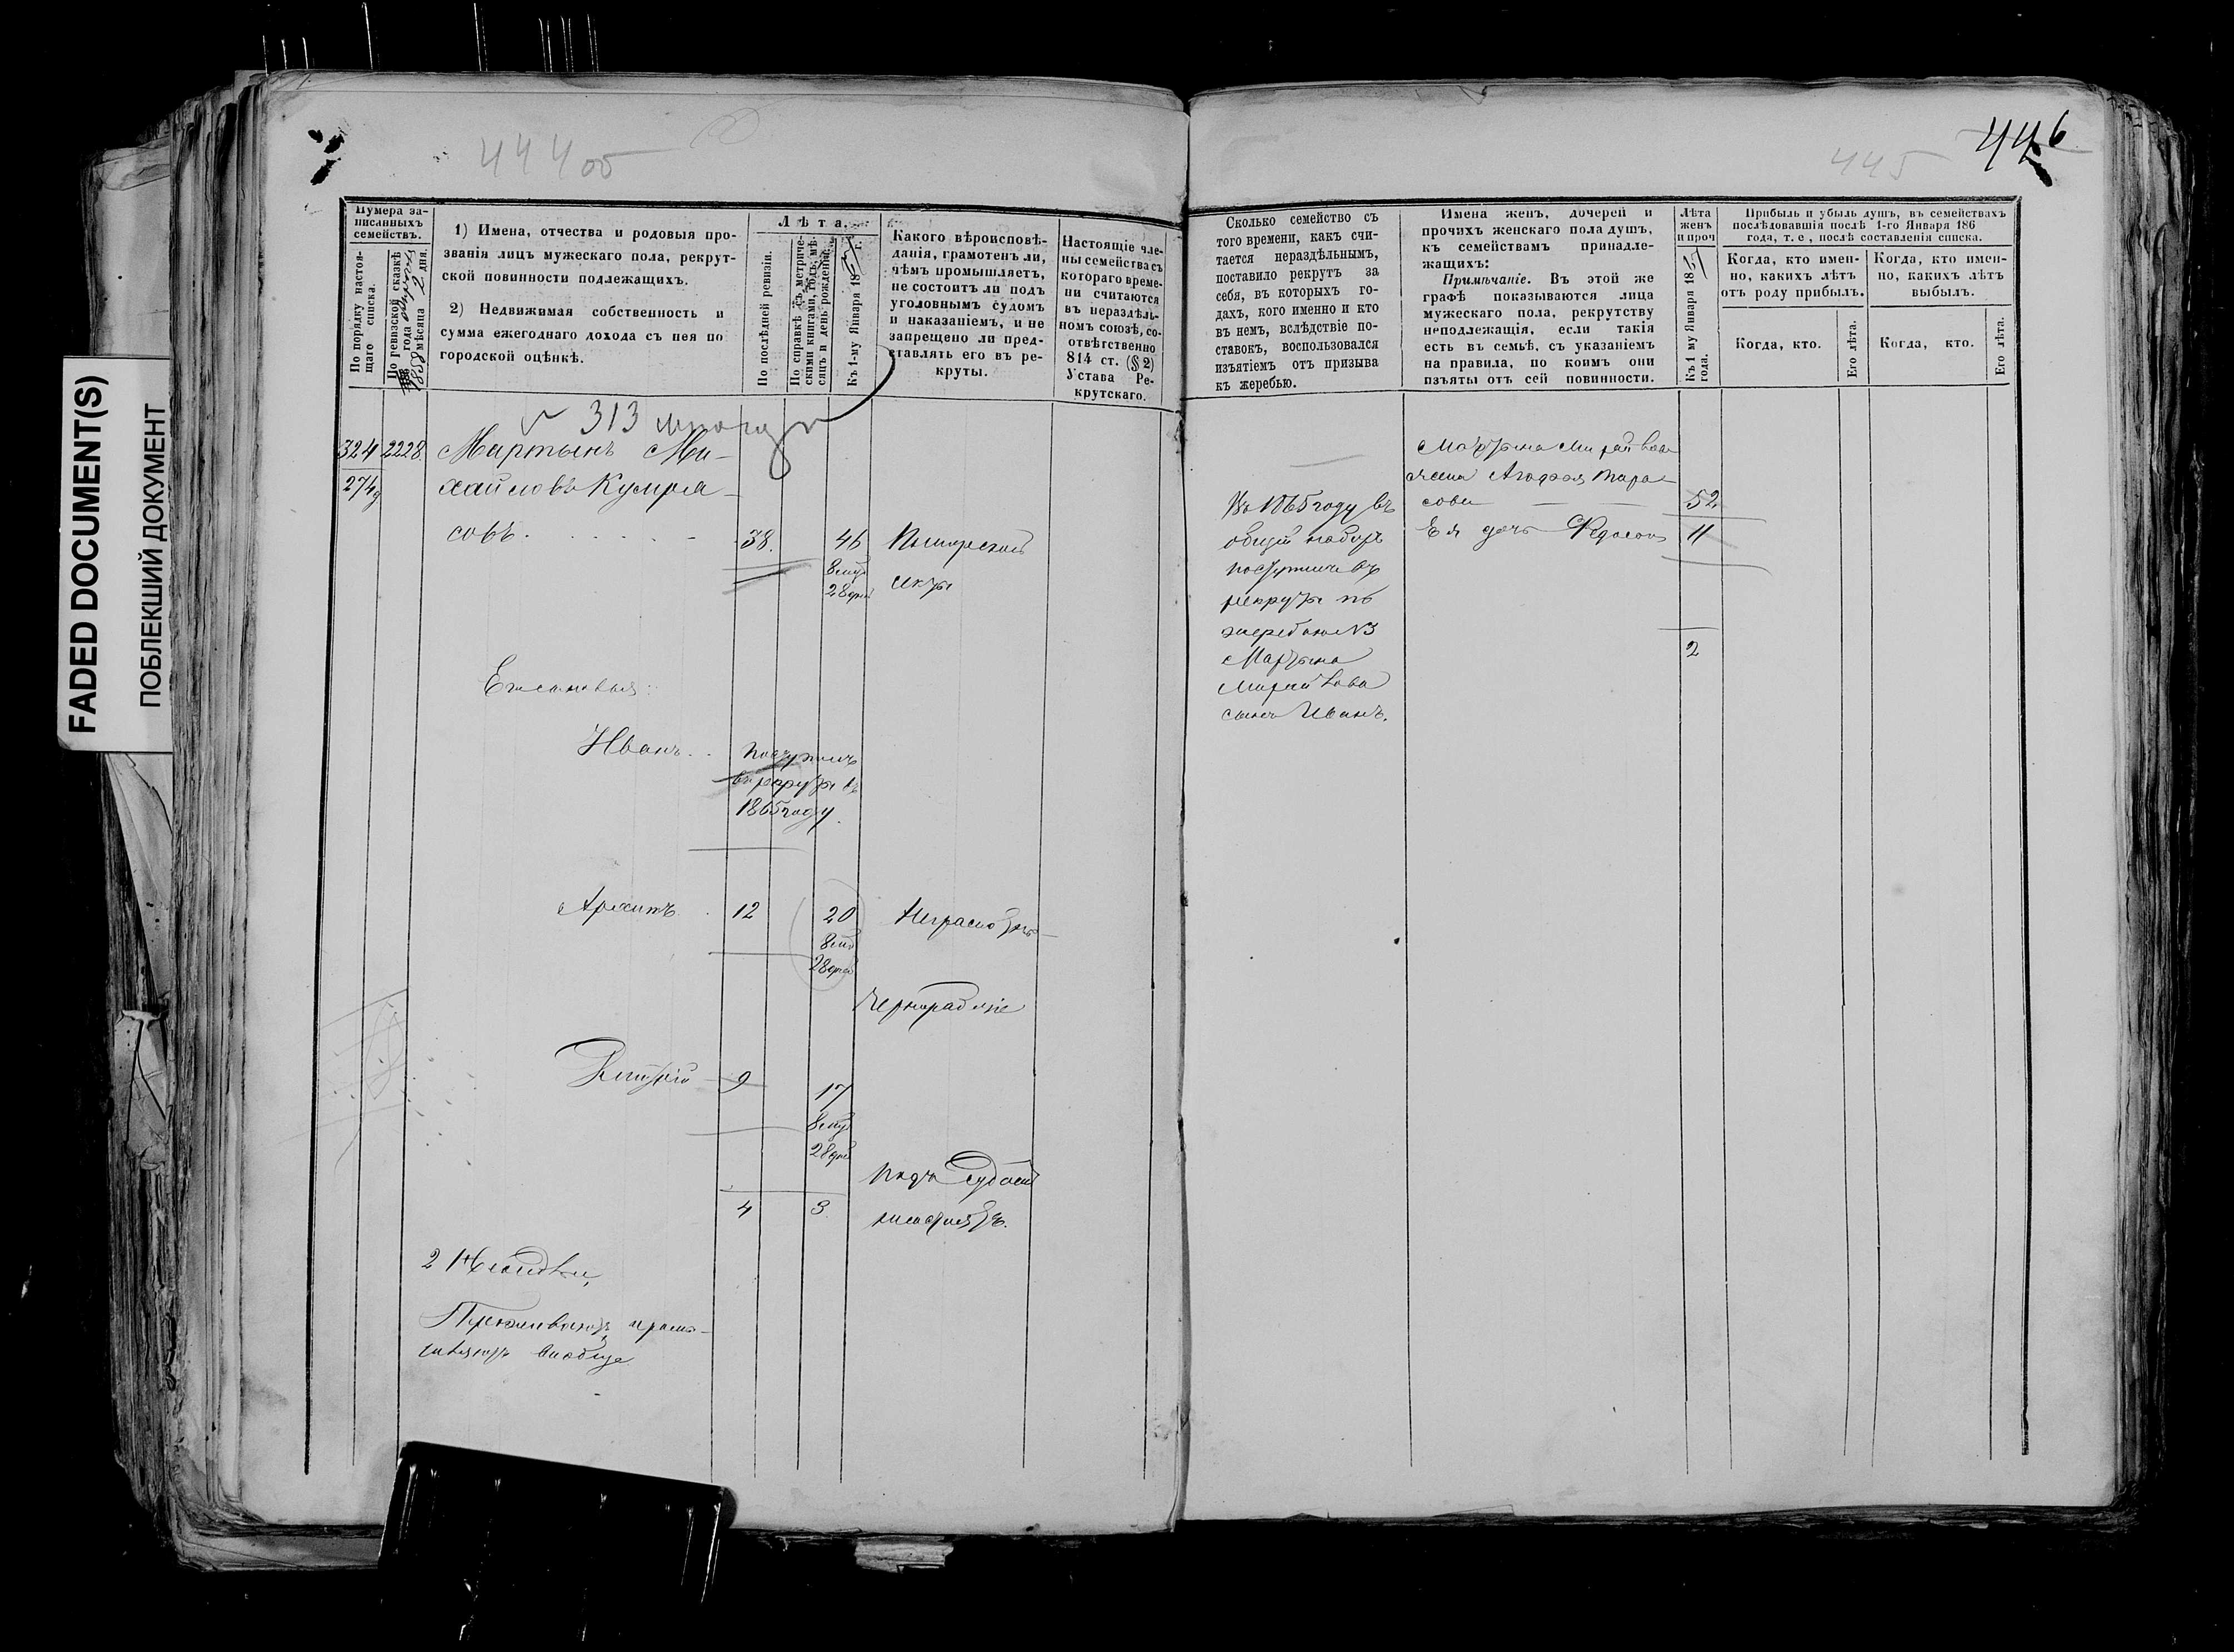 FADED DOCUMENT(S)
ПОБЛЕКШИЙ ДОКУМЕНТ
444 об
Нумера за-
писанныхъ
семействъ.
По порядку настоя-
щаго списка.
По ревизской сказкѣ
1858 года
мѣсяца 2 дня.
1) Имена, отчества и родовыя про-
званія лицъ мужескаго пола, рекрут-
ской повинности подлежащихъ.
2) Недвижимая собственность и
сумма ежегоднаго дохода съ нея по
городской оцѣнкѣ.
Лѣта.
По послѣдней ревизіи.
По справкѣ съ метриче-
скими книгами, годъ, мѣ-
сяцъ и день рожденія.
Къ 1-му Января 186 г.
Какого вѣроисповѣ-
данія, грамотенъ ли,
чѣмъ промышляетъ,
не состоитъ ли подъ
уголовнымъ судомъ
и наказаніемъ, и не
запрещено ли пред-
ставлять его въ ре-
круты.
Настоящіе чле-
ны семейства съ
котораго време-
ни считаются
въ нераздѣль-
номъ союзѣ, со-
отвѣтственно
814 ст. (§ 2)
Устава Ре-
крутскаго.
313
324 2228 Мартынъ Ми-
274 хайловъ Купрея-
совъ 38. 46
8 мѣ
28 дней
Его сыновья:
Иванъ поступилъ
въ рекруты въ
1865 году
Архипъ 12 20
8 мѣ
28 дней
Чернорабочіе
Дмитрій 9 17
8 мѣ
28 дней
Подъ судомъ
4 3
не состоятъ.
2
Проживаютъ
вообще
445
446
Сколько семейство съ
того времени, какъ счи-
тается нераздѣльнымъ,
поставило рекрутъ за
себя, въ которыхъ го-
дахъ, кого именно и кто
въ немъ, вслѣдствіе по-
ставокъ, воспользовался
изъятіемъ отъ призыва
къ жеребью.
Имена женъ, дочерей и
прочихъ женскаго пола душъ,
къ семействамъ принадле-
жащихъ:
Примѣчаніе. Въ этой же
графѣ показываются лица
мужескаго пола, рекрутству
неподлежащія, если такія
есть въ семьѣ, съ указаніемъ
на правила, по коимъ они
изъяты отъ сей повинности.
Лѣта
женъ
и проч
Къ 1 му Января 18
года.
Прибыль и убыль душъ, въ семействахъ
послѣдовавшія послѣ 1-го Января 186
года, т. е, послѣ составленія списка.
Когда, кто имен-
но, какихъ лѣтъ
отъ роду прибылъ.
Когда, кто имен-
но, какихъ лѣтъ
выбылъ.
Когда, кто.
Его лѣта.
Когда, кто.
Его лѣта.
Мартына Михайлова
жена Агафья Тара-
сова 52
Ея дочь Федосья 11
2
Въ 1865 году въ
общій наборъ
поступилъ въ
рекруты по
жеребью №3
Мартына
Михайлова
сынъ Иванъ.